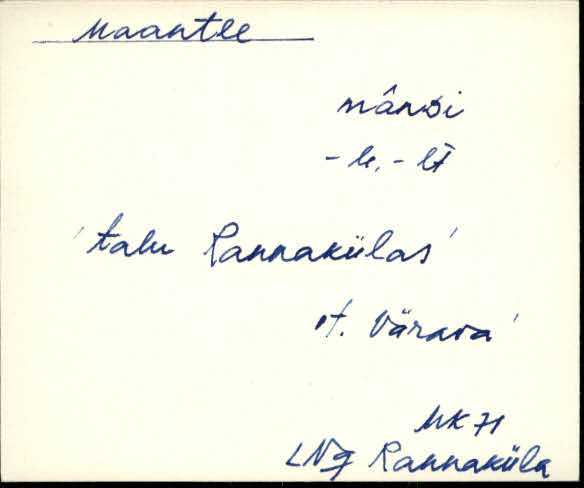 Maantee
mânòi
-le, -lt
'talu Rannakülas'
't. Värava'
MK 71
LNg Rannaküla